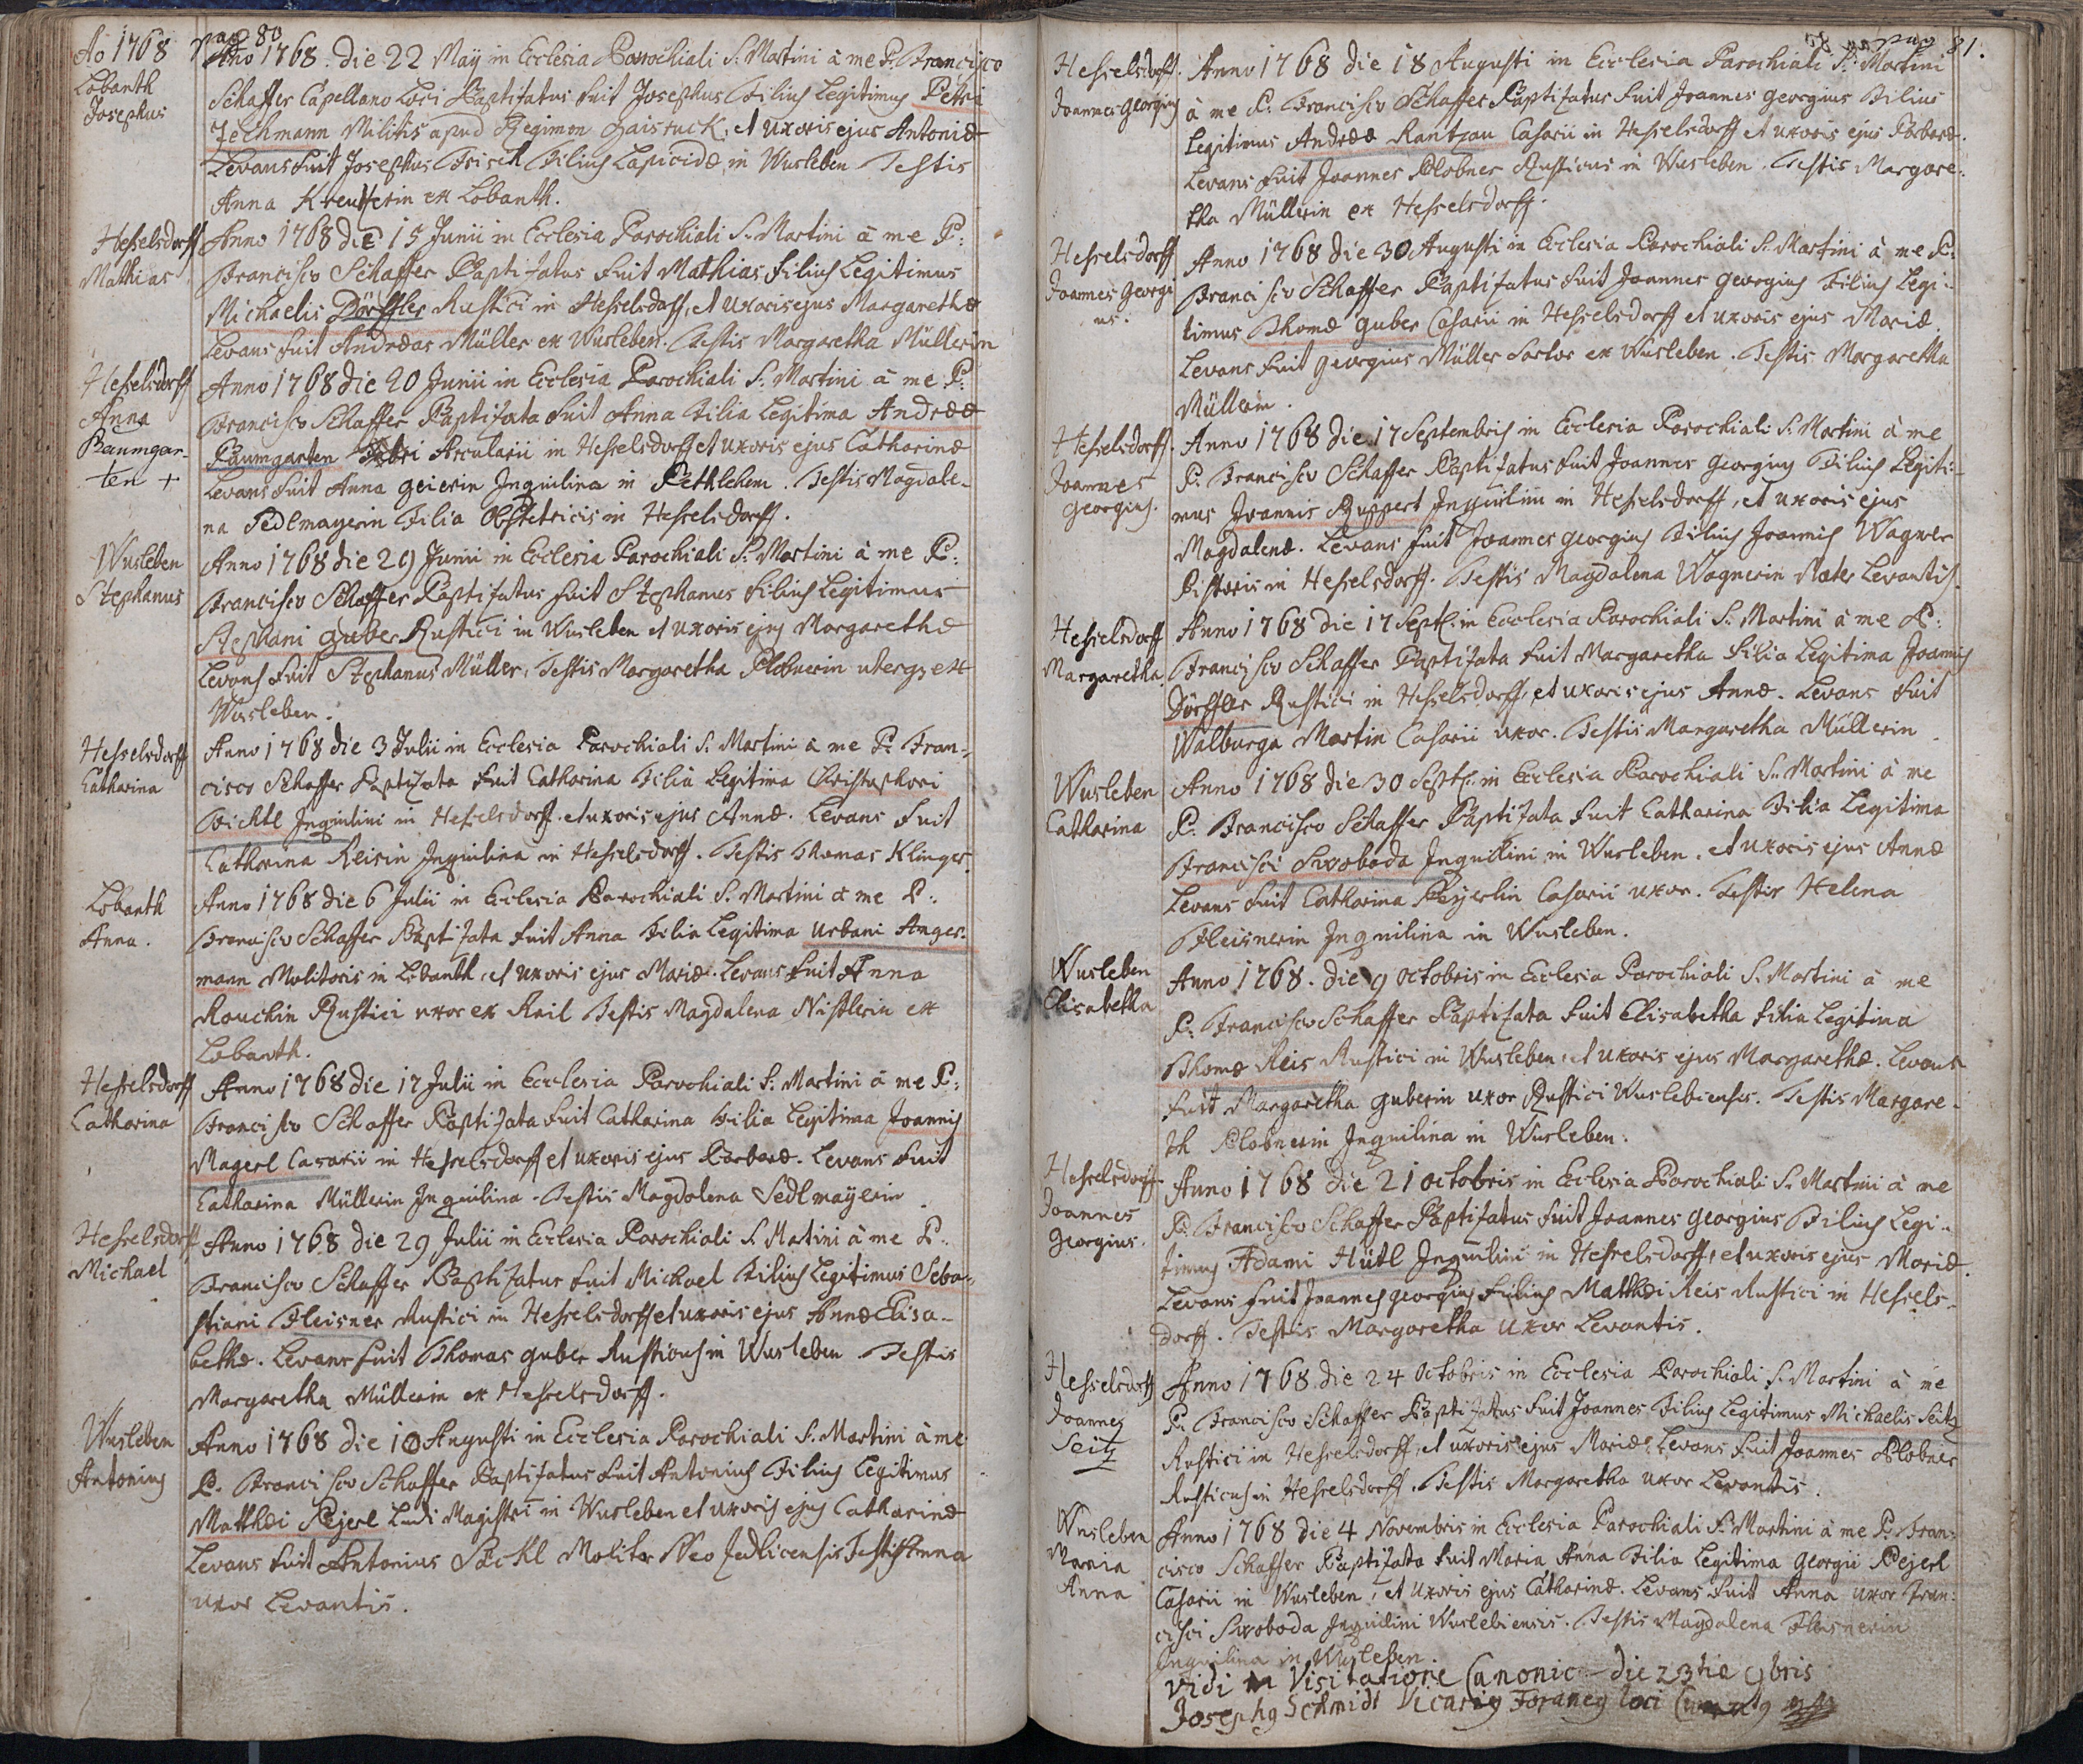 Ao 1768 pag 80
Lobanth
Josephus
Ano 1768. die 22 May in Ecclesia Parochiali S: Martini à me P: Francisco
Schaffer Capellano Loci Baptizatus fuit Josephus Filius Legitimus Petri
Zechmann Militis apud Regimen Gaisruck, et uxoris ejus Antoniæ
Levans fuit Josephus Frisch Filius Lapicidæ in Wusleben Testis
Anna Kreutzerin ex Lobanth.
Hesselsdorff
Mathias
Anno 1768 die 15 Junii in Ecclesia Parochiali S. Martini à me P:
Francisco Schaffer Baptizatus fuit Mathias Filius Legitimus
Michaelis Dörffler Rustici in Hesselsdorff, et uxoris ejus Margarethæ
Levans fuit Andreas Müller ex Wusleben. Testis Margaretha Müllerin
Hesselsdorff
Anna
Baumgar-
ten +
Anno 1768 die 20 Junii in Ecclesia Parochiali S: Martini à me P:
Francisco Schaffer Baptizata fuit Anna Filia Legitima Andreæ
Baumgarten Arcularii in Hesselsdorff et uxoris ejus Catharinæ
Levans fuit Anna Geierin Inquilina in Bethlehem. Testis Magdale-
na Sedlmayerin Filia Obstetricis in Hesselsdorff.
Wusleben
Stephanus
Anno 1768 die 29 Junii in Ecclesia Parochiali S: Martini à me P:
Francisco Schaffer Baptizatus fuit Stephanus Filius Legitimus
Stephani Guber Rustici in Wusleben et uxoris ejus Margarethæ
Levans fuit Stephanus Müller, Testis Margaretha Plobnerin uterq3 ex
Wusleben.
Hesselsdorff
Catharina
Anno 1768 die 3 Julii in Ecclesia Parochiali S. Martini à me P: Fran-
cisco Schaffer Baptizata fuit Catharina Filia Legitima Christophori
Bichtl Inquilini in Hesselsdorff. et uxoris ejus Annæ. Levans fuit
Catharina Reisin Inquilina in Hesselsdorff. Testis Thomas Klinger
Lobanth
Anna.
Anno 1768 die 6 Julii in Ecclesia Parochiali S. Martini à me P:
Francisco Schaffer Baptizata fuit Anna Filia Legitima Urbani Anger-
mann Molitoris in Lobanth, et uxoris ejus Mariæ. Levans fuit Anna
Rouchin Rustici uxor ex Rail Testis Magdalena Nistlerin ex
Lobanth.
Hesselsdorff
Catharina
Anno 1768 die 17 Julii in Ecclesia Parochiali S: Martini à me P:
Francisco Schaffer Baptizata fuit Catharina Filia Legitima Joannis
Magerl Casarii in Hesselsdorff et uxoris ejus Barbaræ. Levans fuit
Catharina Müllerin Inquilina. Testis Magdalena Sedlmayerin
Hesselsdorff
Michael
Anno 1768 die 29 Julii in Ecclesia Parochiali S. Martini à me P:
Francisco Schaffer Baptizatus fuit Michael Filius Legitimus Seba-
stiani Fleisner Rustici in Hesselsdorff et uxoris ejus Annæ Elisa-
bethæ. Levans fuit Thomas Guber Rusticus in Wusleben Testis
Margaretha Müllerin ex Hesselsdorff.
Wusleben
Antonius
Anno 1768 die 10 Augusti in Ecclesia Parochiali S: Martini à me
P. Francisco Schaffer Baptizatus fuit Antonius Filius Legitimus
Matthæi Pejerl Ludi Magistri in Wusleben et uxoris ejus Catharinæ
Levans fuit Antonius Böckl Molitor Neo Zedlicensis Testis Anna
uxor Levantis.
pag 81.
Hesselsdorff.
Joannes Georgius
Anno 1768 die 18 Augusti in Ecclesia Parochiali S: Martini
à me P. Francisco Schaffer Baptizatus fuit Joannes Georgius Filius
Legitimus Andreæ Rantzau Casarii in Hesselsdorff et uxoris ejus Barbaræ.
Levans fuit Joannes Plobner Rusticus in Wusleben. Testis Margare-
tha Müllerin ex Hesselsdorff.
Hesselsdorff
Joannes Georgi
us.
Anno 1768 die 30 Augusti in Ecclesia Parochiali S: Martini à me P:
Francisco Schaffer Baptizatus fuit Joannes Georgius Filius Legi-
timus Thomæ Guber Casarii in Hesselsdorff et uxoris ejus Mariæ.
Levans fuit Georgius Müller Sartor ex Wusleben. Testis Margaretha
Müllerin.
Hesselsdorff.
Joannes
Georgius.
Anno 1768 die 17 Septembris in Ecclesia Parochiali S. Martini à me
P. Francisco Schaffer Baptizatus fuit Joannes Georgius Filius Legiti-
mus Joannis Ruppert Inquilini in Hesselsdorff, et uxoris ejus
Magdalenæ. Levans fuit Joannes Georgius Filius Joannis Wagner
Pistoris in Hesselsdorff. Testis Magdalena Wagnerin Mater Levantis.
Hesselsdorff
Margaretha.
Anno 1768 die 17 Sept: in Ecclesia Parochiali S. Martini à me P:
Francisco Schaffer Baptizata fuit Margaretha Filia Legitima Joannis
Dörffler Rustici in Hesselsdorff, et uxoris ejus Annæ. Levans fuit
Walburga Martin Casarii uxor. Testis Margaretha Müllerin
Wusleben
Catharina
Anno 1768 die 30 Sept: in Ecclesia Parochiali S. Martini à me
P. Francisco Schaffer Baptizata fuit Catharina Filia Legitima
Francisci Swoboda Inquilini in Wusleben. et uxoris ejus Annæ
Levans fuit Catharina Peyerlin Casarii uxor. Testis Helena
Fleisnerin Inquilina in Wusleben.
Wusleben
Elisabetha
Anno 1768. die 9 Octobris in Ecclesia Parochiali S. Martini à me
P. Francisco Schaffer Baptizata fuit Elisabetha Filia Legitima
Thomæ Reis Rustici in Wusleben, et uxoris ejus Margarethæ. Levans
fuit Margaretha Guberin uxor Rustici Wuslebiensis. Testis Margare-
th Plobnerin Inquilina in Wusleben.
Hesselsdorff
Joannes
Georgius.
Anno 1768 die 21 Octobris in Ecclesia Parochiali S. Martini à me
P. Francisco Schaffer Baptizatus fuit Joannes Georgius Filius Legi-
timus Adami Hütl Inquilini in Hesselsdorff, et uxoris ejus Mariæ.
Levans fuit Joannes Georgius Filius Matthæi Reis Rustici in Hessels-
dorff. Testis Margaretha uxor Levantis.
Hesselsdorff
Joannes
Seitz
Anno 1768 die 24 Octobris in Ecclesia Parochiali S. Martini à me
P. Francisco Schaffer Baptizatus fuit Joannes Filius Legitimus Michaelis Seitz
Rustici in Hesselsdorff, et uxoris ejus Mariæ, Levans fuit Joannes Plobner
Rusticus in Hesselsdorff. Testis Margaretha uxor Levantis.
Wusleben
Maria
Anna
Anno 1768 die 4 Novembris in Ecclesia Parochiali S: Martini à me P: Fran-
cisco Schaffer Baptizata fuit Maria Anna Filia Legitima Georgii Pejerl
Casarii in Wusleben, et uxoris ejus Catharinæ. Levans fuit Anna uxor Fran-
cisci Swoboda Inquilini Wuslebiensis. Testis Magdalena Fleisnerin
Inquilina in Wusleben.
Vidi in Visitatione Canonic die 23tia 9bris
Josephg Schmidt Vicarig Foraneg loci